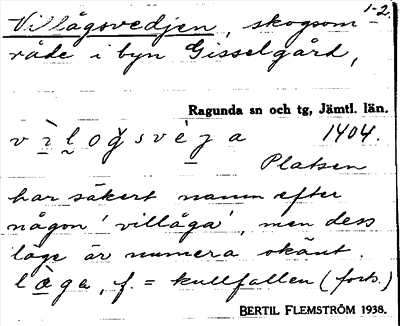 1-2.
Villågsvedjen, skogsom-
råde i byn Gisselgård,
Ragunda sn och tg, Jämtl. län.
vìlogsvèja 1404.
Platsen
har säkert namn efter
någon 'villåga', men dess
läge är numera okänt.
låga, f. = kullfallen (forts.)
BERTIL FLEMSTRÖM 1938.